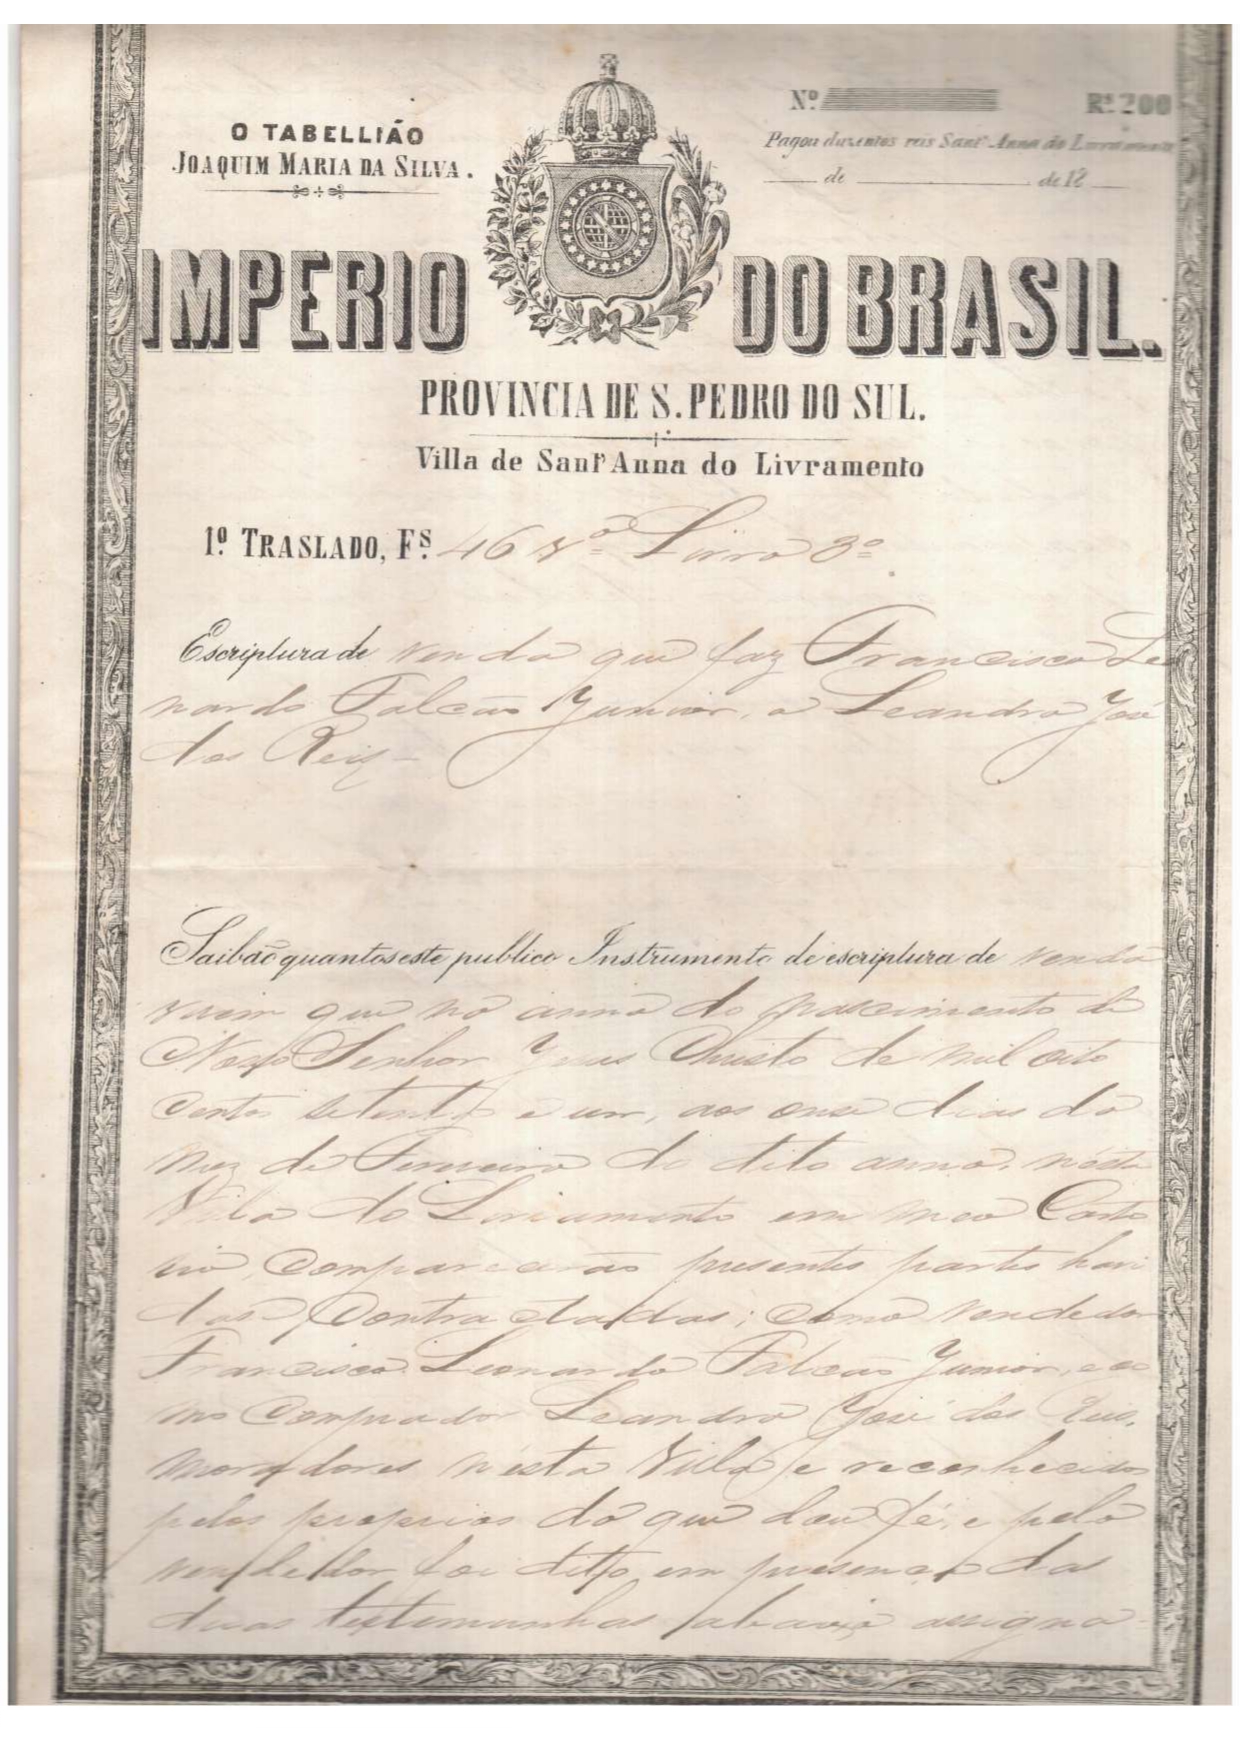 O TABELLIÃO
JOAQUIM MARIA DA SILVA.
Nº
Rs. 200
Pagou duzentos reis Sant' Anna do Livramento
de de 18
IMPERIO DO BRASIL.
PROVINCIA DE S. PEDRO DO SUL.
Villa de Sant' Anna do Livramento
1º TRASLADO, Fs. 46 vº Livro 3º
Escriptura de venda que faz Francisco Leo
nardo Falcão Junior, a Leandro José
dos Reis
Saibão quantos este publico Instrumento de escriptura de venda
virem que no anno do nascimento de
Nosso Senhor Jesus Christo de mil oito
centos setenta e um, aos onse dias do
mez de Fevereiro do dito anno, nesta
Villa do Livramento em meo Carto
rio, comparecerão presentes partes havi
das, Contractadas; como vendedor
Francisco Leonardo Falcão Junior, e co
mo Comprador Leandro José dos Reis,
moradores nesta Villa e reconhecidos
pelos proprios do que dou fé, e pelo
vendedor foi dito em presença das
duas testemunhas abaixo assigna-